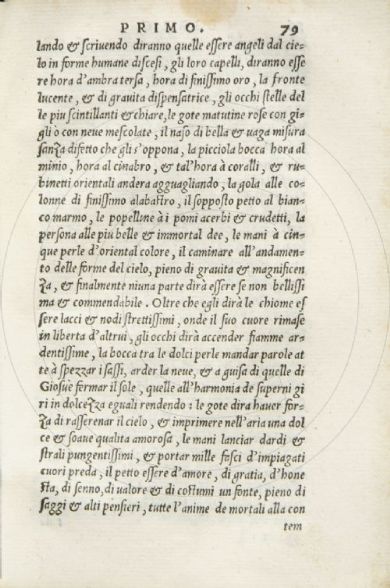 PRIMO. 79
lando & scriuendo diranno quelle essere angeli dal cie-
lo in forme humane discesi, gli loro capelli, diranno esse
re hora d'ambra tersa, hora di finissimo oro, la fronte
lucente, & di grauita dispensatrice, gli occhi stelle del
le piu scintillanti & chiare, le gote matutine rose con gi-
gli ò con neue mescolate, il naso di bella & uaga misura
sanza difetto che gli s'oppona, la picciola bocca hora al
minio, hora al cinabro, & tal'hora à coralli, & ru-
binetti orientali andera agguagliando, la gola alle co-
lonne di finissimo alabastro, il sopposto petto al bian-
co marmo, le popelline à i pomi acerbi & crudetti, la
persona alle piu belle & immortal dee, le mani à cin-
que perle d'oriental colore, il caminare all'andamen-
to delle forme del cielo, pieno di grauita & magnificen
za, & finalmente niuna parte dirà essere se non bellissi
ma & commendabile. Oltre che egli dirà le chiome es
sere lacci & nodi strettissimi, onde il suo cuore rimase
in liberta d'altrui, gli occhi dirà accender fiamme ar-
dentissime, la bocca tra le dolci perle mandar parole at
te à spezzar i sassi, arder la neue, & a guisa di quelle di
Giosue fermar il sole, quelle all'harmonia de superni gi
ri in dolcezza eguali rendendo: le gote dira hauer for-
za di rasserenar il cielo, & imprimere nell'aria una dol
ce & soaue qualita amorosa, le mani lanciar dardi &
strali pungentissimi, & portar mille fasci d'impiagati
cuori preda, il petto essere d'amore, di gratia, d'hone
sta, di senno, di ualore & di costumi un fonte, pieno di
saggi & alti pensieri, tutte l'anime de mortali alla con
tem